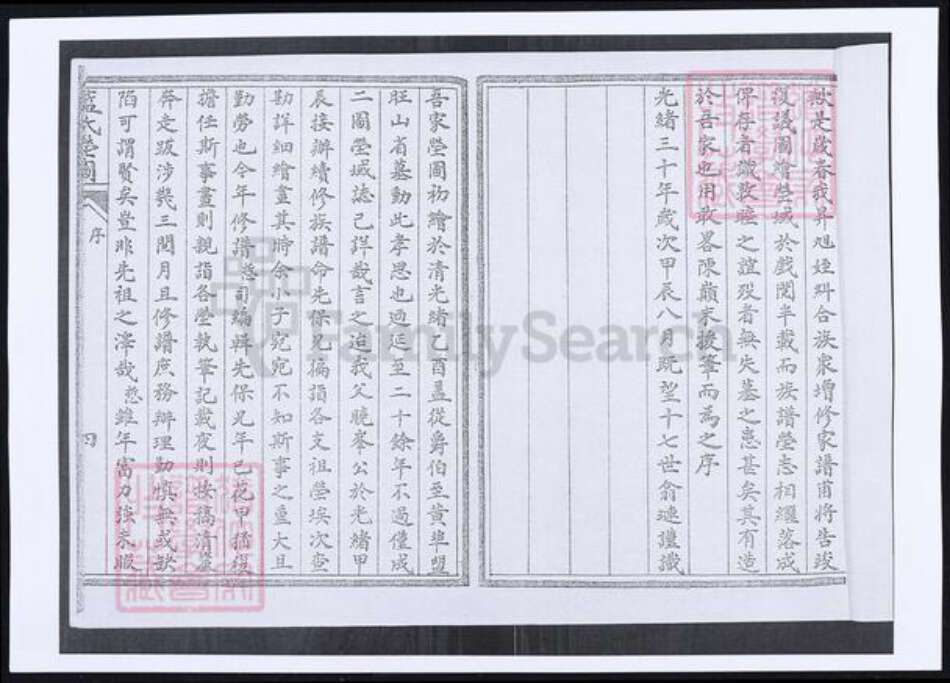 歟是歲春我昇旭姪糾合族眾增修家譜甫將告竣
復議圖繪塋域於戲閱半載而族譜塋志相繼落成
俾存者識敦睦之誼歿者無失墓之患甚矣其有造
於吾家也用敢畧陳巔末援筆而為之序
光緒三十年歲次甲辰八月既望十七世俞謹識
吾家塋圖初繪於清光緒乙酉孟從爵伯至黄埠盟
旺山省墓動此孝思也迺延至二十餘年不過僅成
二圖塋域誌已詳哉言之迨我父曉峯公於光緒甲
辰接辦續修族譜命先保兄徧指各支祖塋埃次查
勘詳細繪畫其時余小子宛宛不知斯事之重大且
勤勞也今年修譜慈司編輯先保兄年已花甲猶復
擔任斯事晝則親詣各塋執筆記載夜則按稿清釐
奔走跋涉幾三閱月且修譜庶務辦理勤慎無或缺
陷可謂賢矣豈非先祖之澤哉慈雖年富力強未暇
藍氏塋圖
序
四
FamilySearch